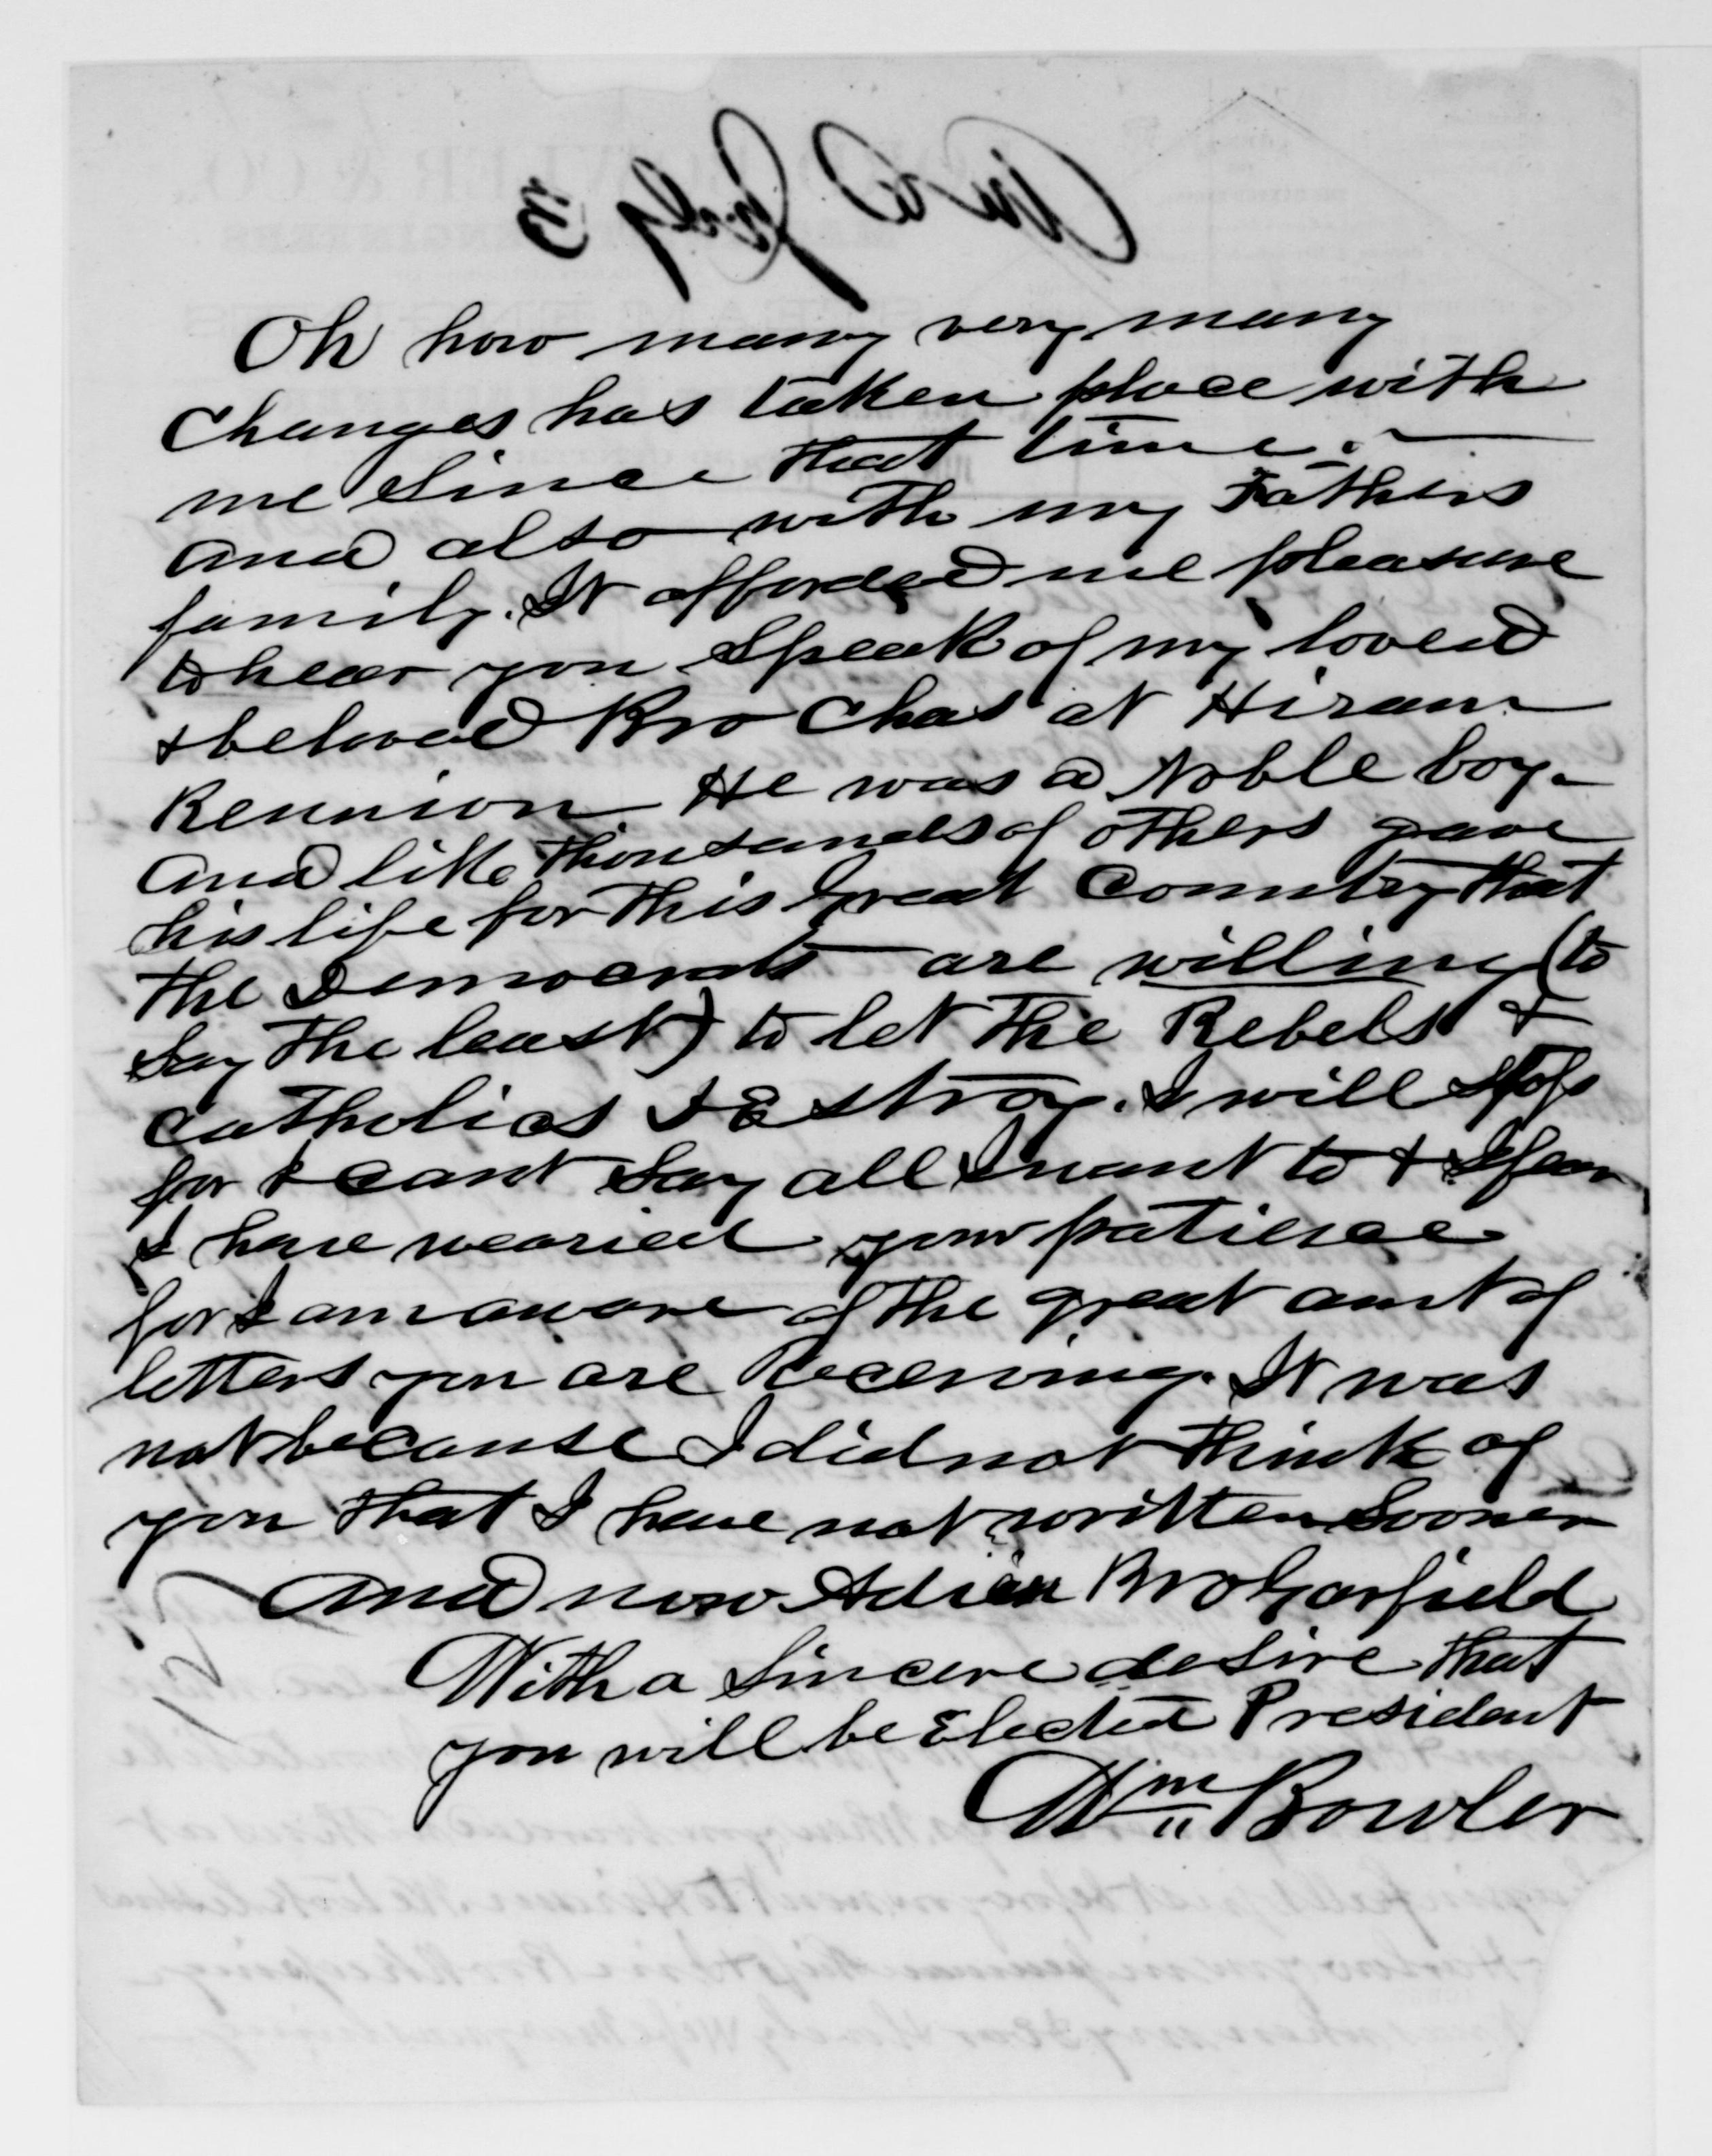 Ansd July 3
Oh how many very many
Changes has taken place with
me since that time.
and also with my Fathers
family. It afforded me pleasure
to hear you speak of my loved
& beloved Bro Chas at Hiram
Reunion He was a Noble boy.
and like thousands of others gave
his life for this great Country that
the Democrats are willing (to
say the least) to let the Rebels &
Catholics destroy. I will stop
for I cant say all I want to & I fear
I have wearied your patience
for I am aware of the great amt of
letters you are Receiving. It was
not because I did not think of
you that I have not written sooner
and now Adieu Bro Garfield
With a sincere desire that
you will be Elected President
Wm Bowler